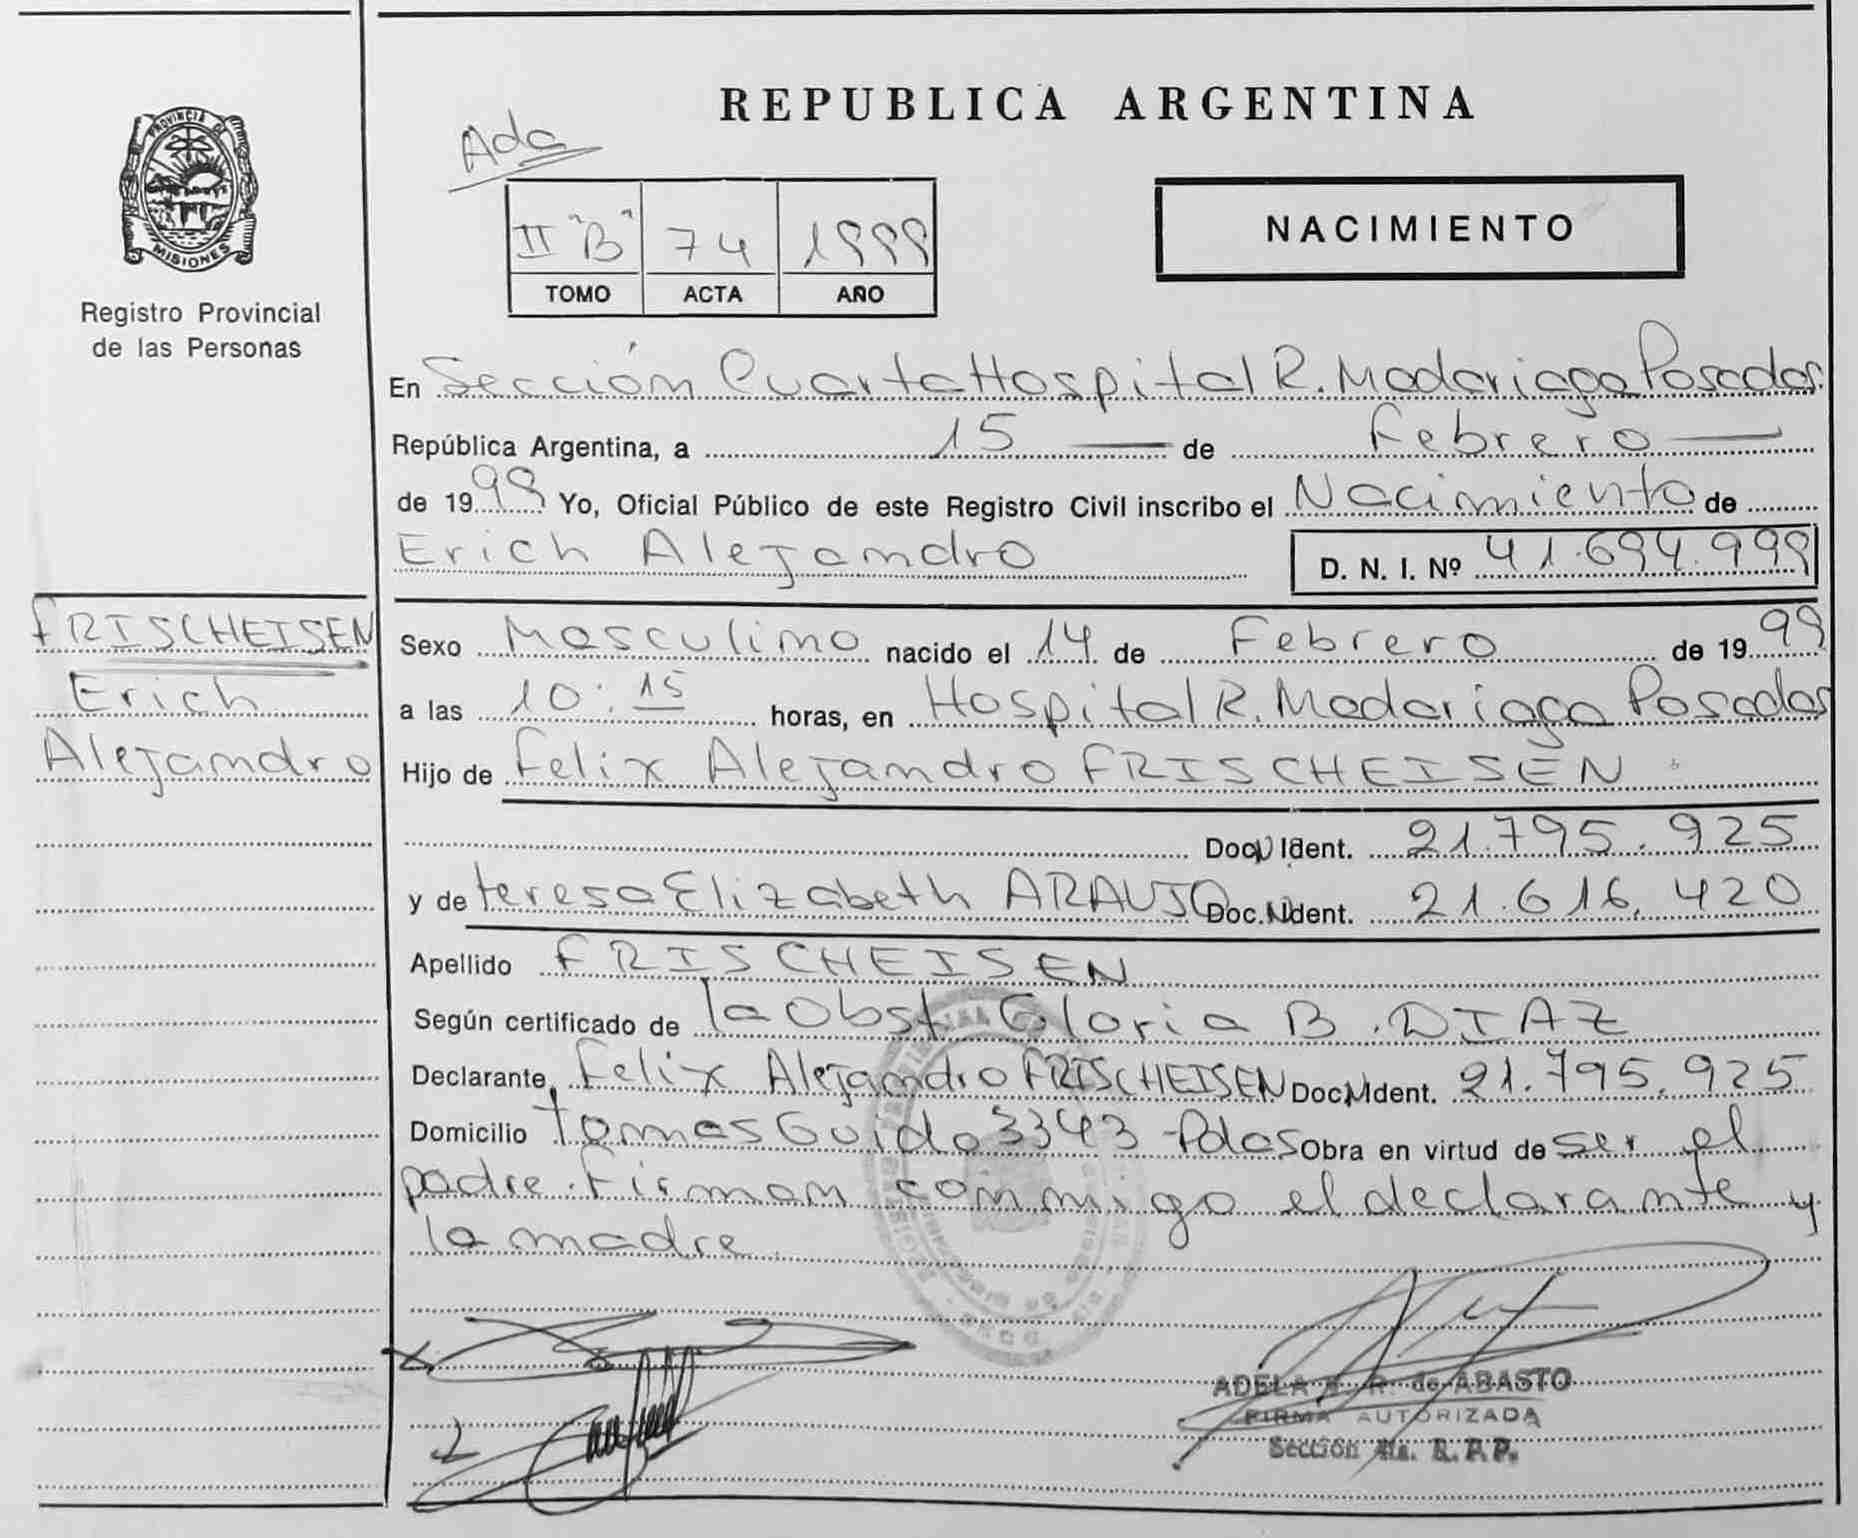 REPUBLICA ARGENTINA
Ada
PROVINCIA DE
MISIONES
Registro Provincial
de las Personas
II "B" 74 1999
TOMO ACTA AÑO
NACIMIENTO
En Sección Cuarta Hospital R. Madariaga Posadas.
República Argentina, a 15 de Febrero
de 1999 Yo, Oficial Público de este Registro Civil inscribo el Nacimiento de
Erich Alejandro D. N. I. Nº 41.694.999
FRISCHEISEN
Erich
Alejandro
Sexo Masculino nacido el 14 de Febrero de 1999
a las 10:15 horas, en Hospital R. Madariaga Posadas
Hijo de Felix Alejandro FRISCHEISEN
Doc. Ident. 21.795.925
y de teresa Elizabeth ARAUJO Doc. Ident. 21.616.420
Apellido FRISCHEISEN
Según certificado de la Obst. Gloria B. DIAZ
Declarante, Felix Alejandro FRISCHEISEN Doc. Ident. 21.795.925
Domicilio tomas Guido 3343 -Pdas Obra en virtud de ser el
padre. Firman conmigo el declarante y
la madre.
ADELA R. de ABASTO
FIRMA AUTORIZADA
Sección 4a. R.P.P.